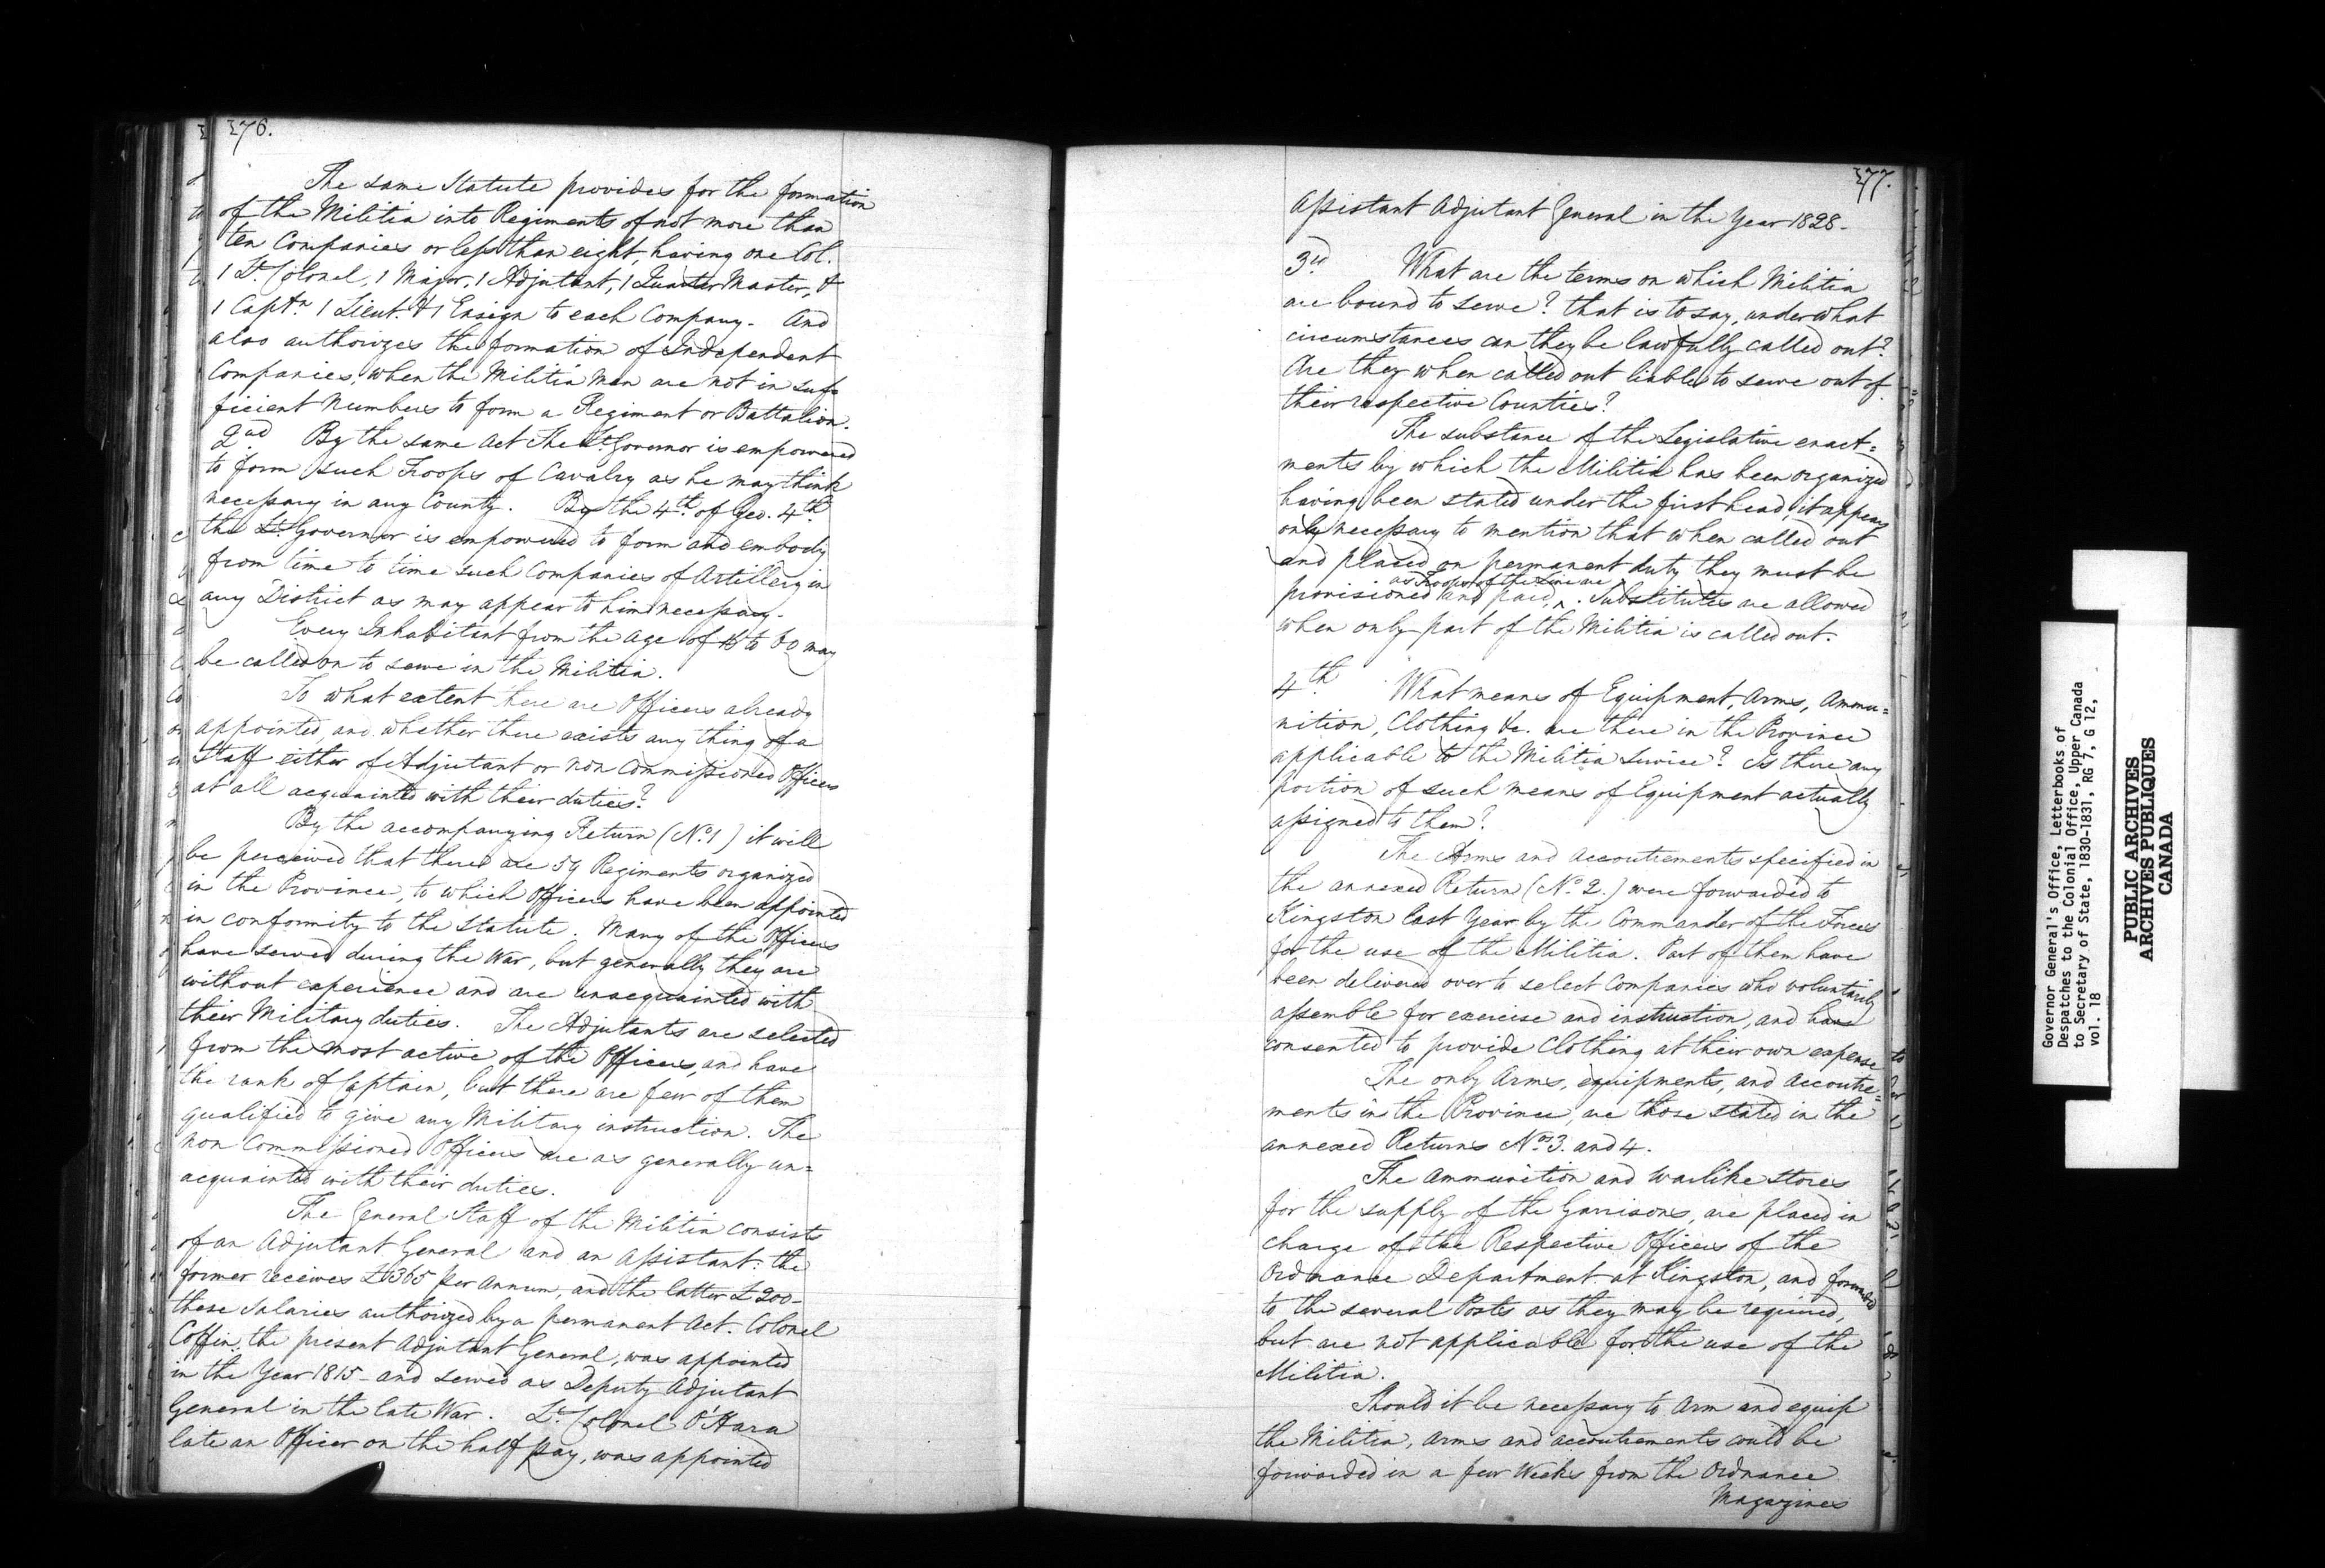 276.
The same Statute provides for the formation
of the Militia into Regiments of not more than
ten Companies or less than eight, having one Col.
1 Lt. Colonel, 1 Major, 1 Adjutant, 1 Quarter Master, &
1 Captn. 1 Lieut. & 1 Ensign to each Company. And
also authorizes the formation of Independent
Companies, when the Militia Men are not in suf=
ficient Numbers to form a Regiment or Battalion.
2nd By the same Act the Lt. Governor is empowered
to form such Troops of Cavalry as he may think
necessary in any County. By the 4th. of Geo. 4th.
the Lt. Governor is empowered to form and embody
from time to time such Companies of Artillery in
any District as may appear to him necessary.
Every Inhabitant from the age of 16 to 60 may
be called on to serve in the Militia.
To what extent there are Officers already
appointed, and whether there exists any thing of a
Staff either of Adjutant or Non Commissioned Officers
at all acquainted with their duties?
By the accompanying Return (No. 1) it will
be perceived that there are 59 Regiments organized
in the Province, to which Officers have been appointed
in conformity to the Statute. Many of the Officers
have served during the War, but generally they are
without experience and are unacquainted with
their Military duties. The Adjutants are selected
from the most active of the Officers, and have
the rank of Captain, but there are few of them
qualified to give any Military instruction. The
Non Commissioned Officers are as generally un=
acquainted with their duties.
The General Staff of the Militia consists
of an Adjutant General and an Assistant: the
former receives £365 per Annum, and the latter £200-
these Salaries authorized by a permanent Act. Colonel
Coffin, the present Adjutant General, was appointed
in the Year 1815 - and served as Deputy Adjutant
General in the late War. Lt. Colonel O'Hara
late an Officer on the half pay, was appointed
277.
Assistant Adjutant General in the Year 1828-
3rd What are the terms on which Militia
are bound to serve? that is to say, under what
circumstances can they be lawfully called out?
Are they when called out liable to serve out of
their respective Counties?
The substance of the Legislative enact=
ments by which the Militia has been organized
having been stated under the first head, it appears
only necessary to mention that when called out
and placed on permanent duty they must be
as Troops of the Line are
provisioned and paid, ^. Substitutes are allowed
when only part of the Militia is called out.
4th. What means of Equipment, Arms, Ammu=
nition, Clothing &c. are there in the Province
applicable to the Militia Service? Is there any
portion of such means of Equipment actually
assigned to them?
The Arms and Accoutrements specified in
the annexed Return (No. 2.) were forwarded to
Kingston last Year by the Commander of the Forces
for the use of the Militia. Part of them have
been delivered over to select Companies who voluntarily
assemble for exercise and instruction, and have
consented to provide Clothing at their own expense
The only Arms, equipments, and Accoutre=
ments in the Province, are those stated in the
annexed Returns Nos. 3. and 4.
The Ammunition and warlike stores
for the supply of the Garrisons, are placed in
charge of the Respective Officers of the
Ordnance Department at Kingston, and forwarded
to the several Posts as they may be required,
but are not applicable for the use of the
Militia.
Should it be necessary to Arm and equip
the Militia, Arms and accoutrements could be
forwarded in a few Weeks from the Ordnance
Magazines
Governor General's Office, Letterbooks of
Despatches to the Colonial Office, Upper Canada
to Secretary of State, 1830-1831, RG 7, G 12,
vol. 18
PUBLIC ARCHIVES
ARCHIVES PUBLIQUES
CANADA